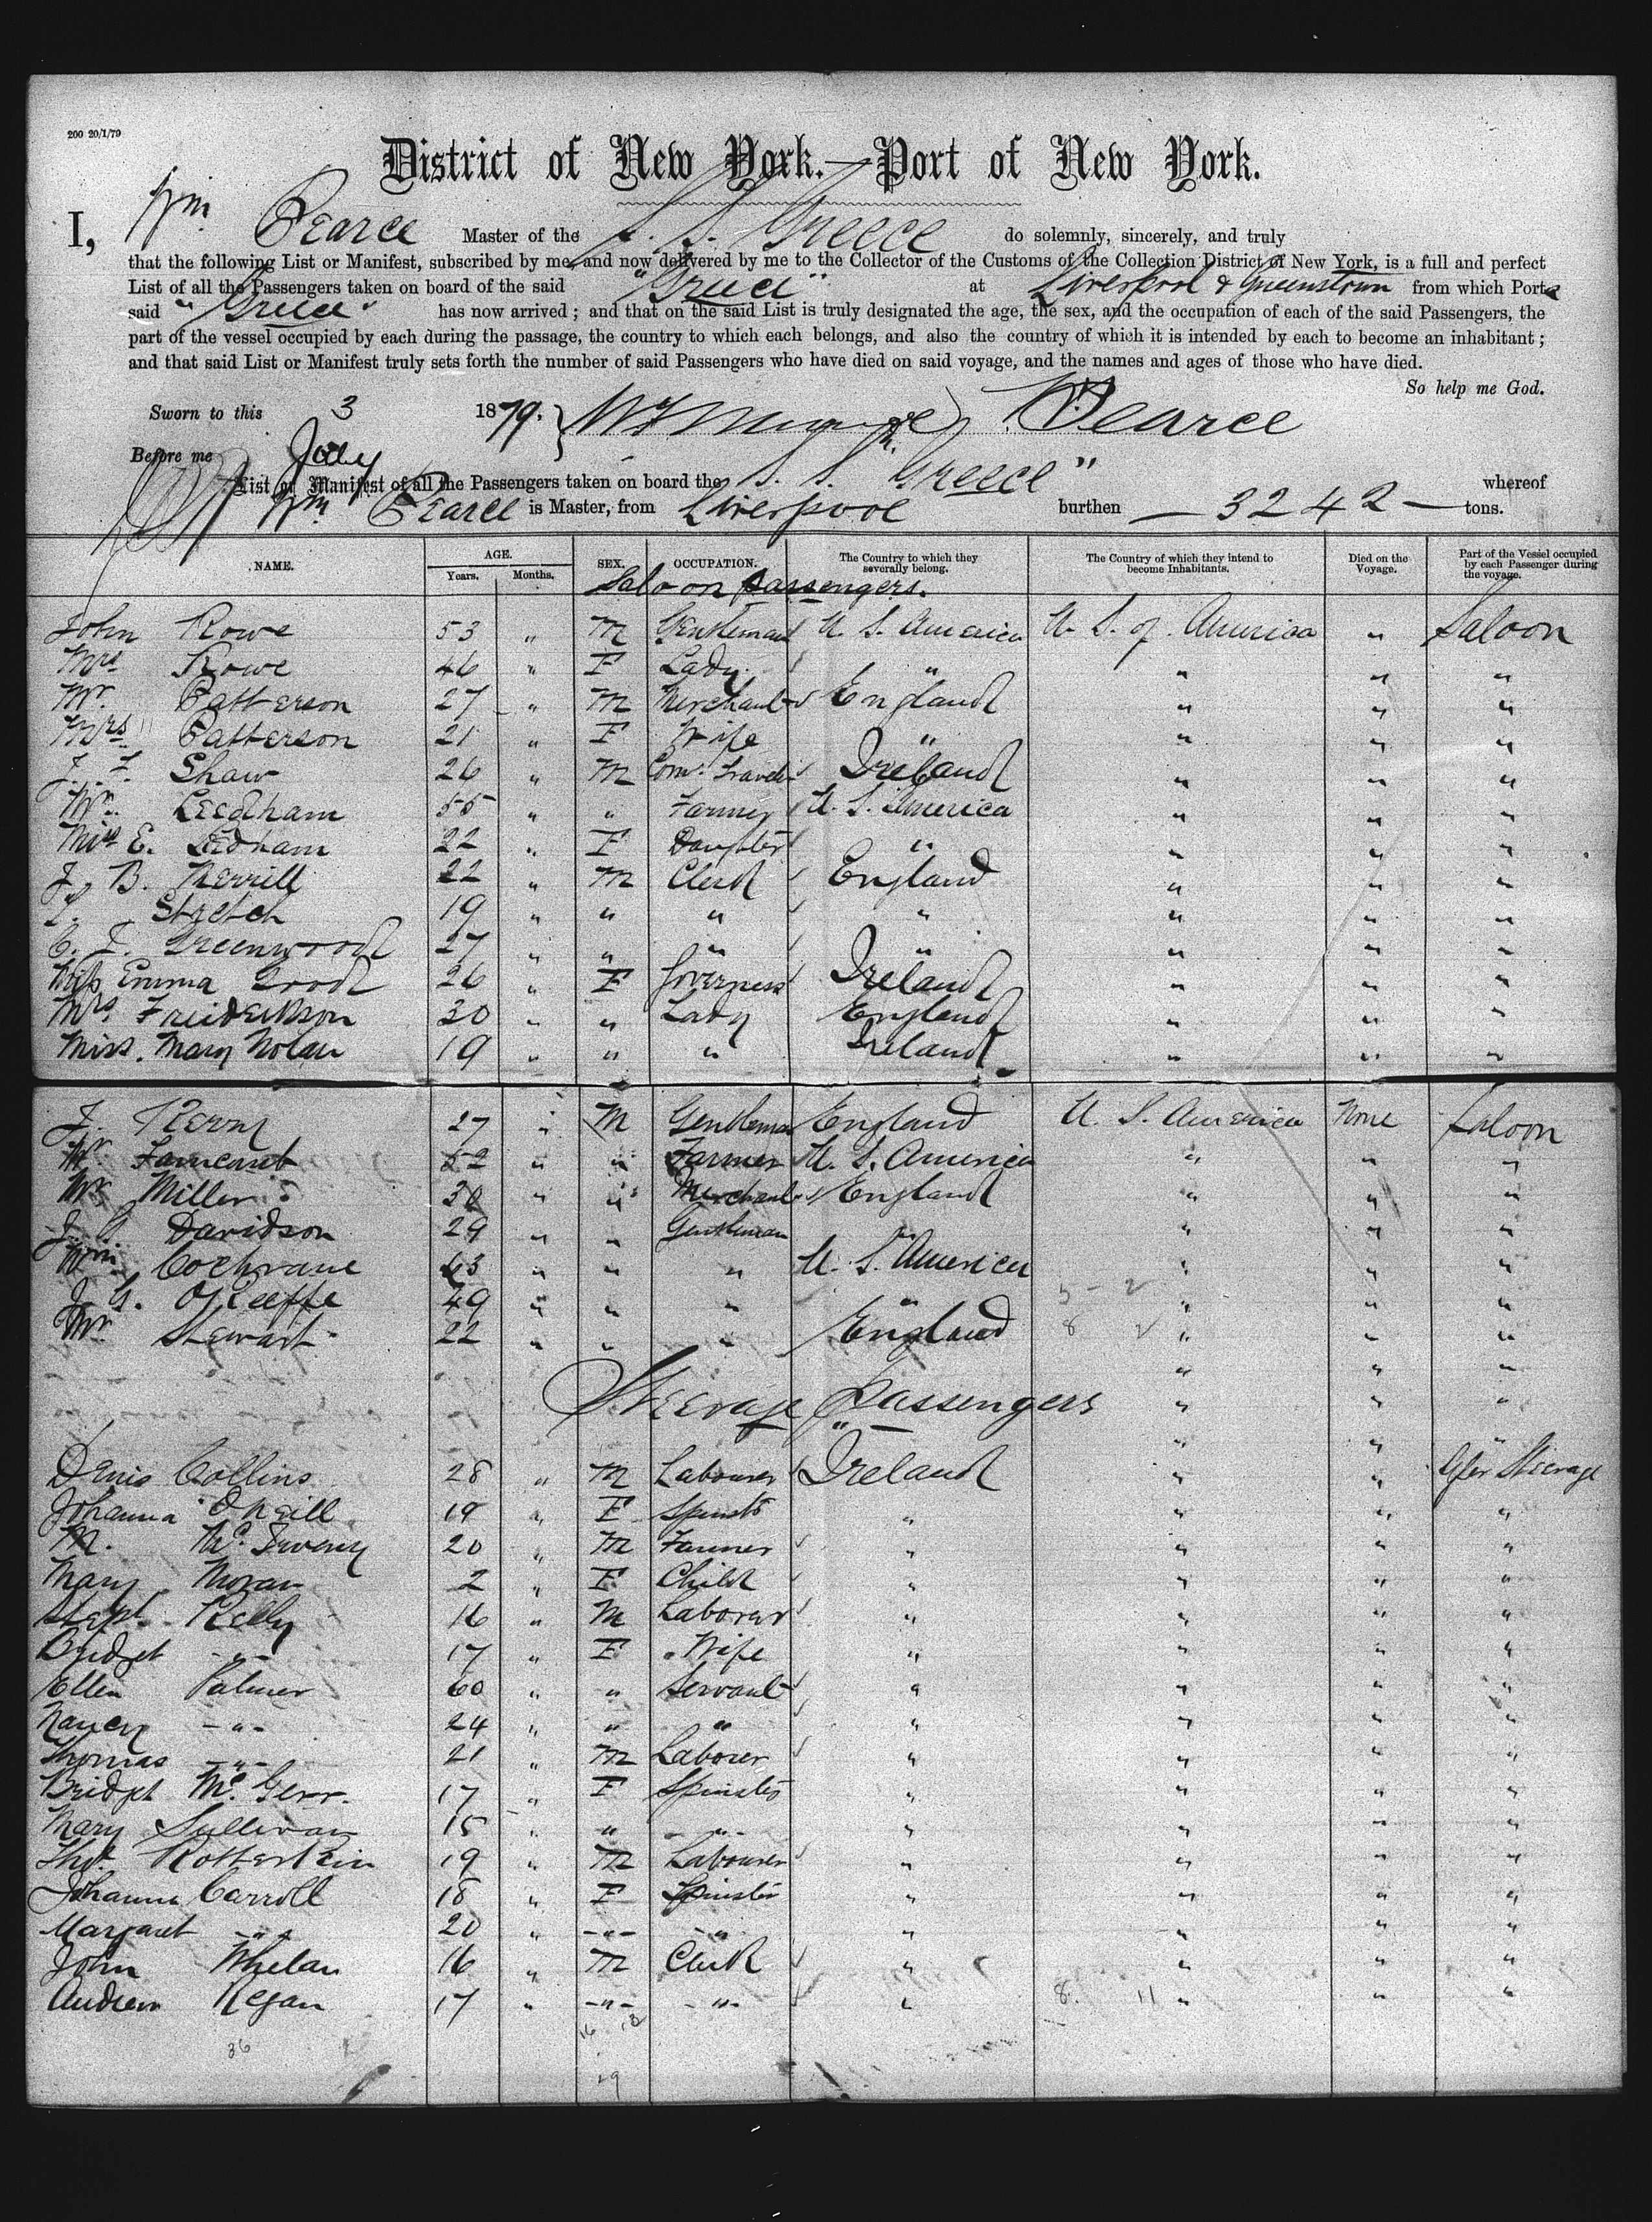 200 20/1/79
District of New York.—Port of New York.
I, Wm. Pearce Master of the S. S. Greece do solemnly, sincerely, and truly
that the following List or Manifest, subscribed by me, and now delivered by me to the Collector of the Customs of the Collection District of New York, is a full and perfect
List of all the Passengers taken on board of the said "Greece" at Liverpool & Queenstown from which Ports
said "Greece" has now arrived; and that on the said List is truly designated the age, the sex, and the occupation of each of the said Passengers, the
part of the vessel occupied by each during the passage, the country to which each belongs, and also the country of which it is intended by each to become an inhabitant;
and that said List or Manifest truly sets forth the number of said Passengers who have died on said voyage, and the names and ages of those who have died.
So help me God.
Sworn to this 3 1879. } W Pearce
Before me July
List or Manifest of all the Passengers taken on board the S. S. "Greece" whereof
Wm. Pearce is Master, from Liverpool burthen — 3242 — tons.
NAME. AGE. Years. Months. SEX. OCCUPATION. The Country to which they severally belong. The Country of which they intend to become Inhabitants. Died on the Voyage. Part of the Vessel occupied by each Passenger during the voyage.
Saloon Passengers.
John Rowe 53 " M Gentleman U. S. America U. S. of America " Saloon
Mrs Rowe 46 " F Lady " " " "
Mr. Patterson 27 " M Merchant England " " "
Mrs Patterson 21 " F Wife " " " "
J. F. Shaw 26 " M Com. Travelr Ireland " " "
Wm. Leedham 55 " " Farmer U. S. America " " "
Miss E. Ledham 22 " F Daughter " " " "
J. B. Merrill 22 " M Clerk England " " "
Stretch 19 " " " " " " "
C. J. Greenwood 27 " " " " " " "
Miss Emma Good 26 " F Governess Ireland " " "
Mrs. Friederikson 30 " " Lady England " " "
Miss. Mary Nolan 19 " " " Ireland " " "
J. Kerry 27 " M Gentleman England U. S. America None Saloon
52 " " Farmer U. S. America " " "
Mr Miller 30 " " Merchant England " " "
Davidson 29 " " Gentleman " " " "
Wm. Cochrane 63 " " " U. S. America " " "
J. G. O'Keeffe 49 " " " " " " "
Mr. Stewart 22 " " " England " " "
" " "
Steerage Passengers " " "
" " "
Denis Collins 28 " M Labourer Ireland " " After Steerage
Johanna O'Neill 19 " F Spinstr " " " "
M. Mc. 20 " M Farmer " " " "
Mary Moran 2 " F Child " " " "
Steph. Kelly 16 " M Laborer " " " "
Bridget -"- 17 " F Wife " " " "
Ellen Palmer 60 " " Servant " " " "
Nancy -"- 24 " " " " " " "
Thomas -"- 21 " M Laborer " " " "
Bridget Mc. Gerr. 17 " F Spinster " " " "
Mary Sullivan 15 " " -"- " " " "
Thos. Rotterkin 19 " M Labourer " " " "
Johanna Carroll 18 " F Spinster " " " "
Margaret -"- 20 " -"- -"- " " " "
John Whelan 16 " M Clerk " " " "
Andrew Regan 17 " -"- -"- " " " "
36
19